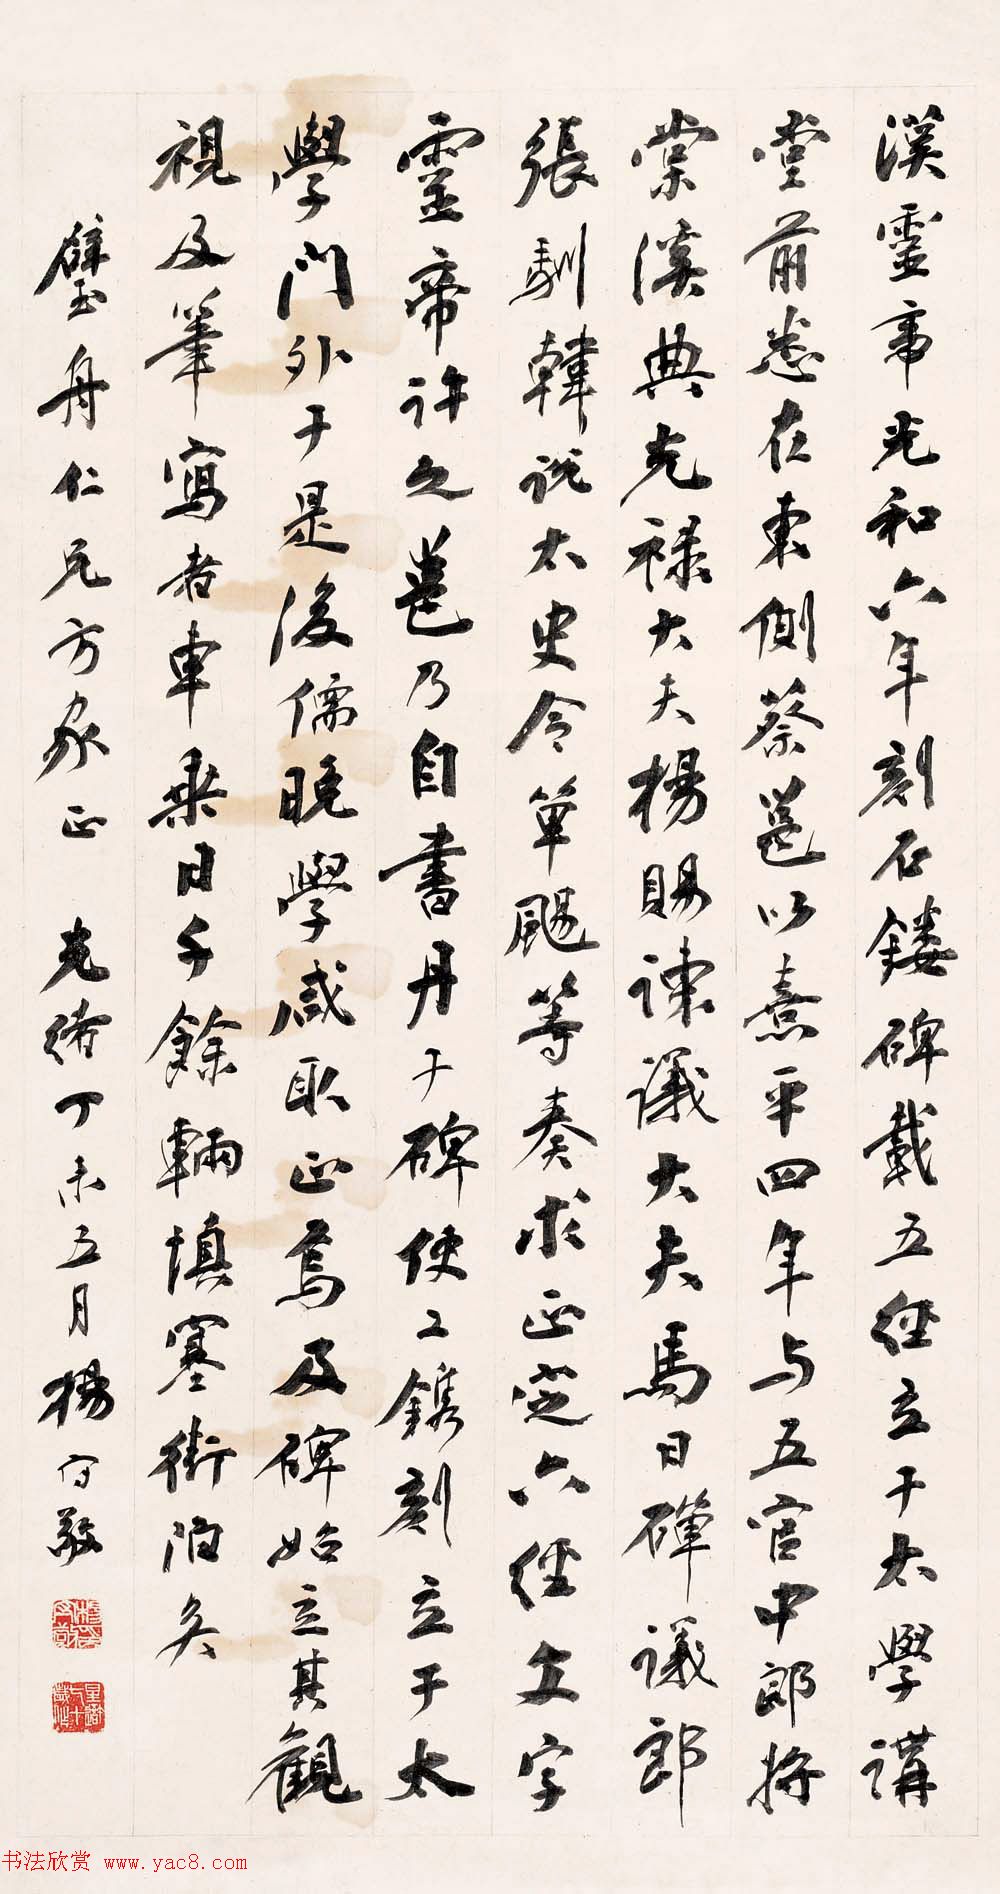 漢靈帝光和六年刻石鏤碑載五经立于太學講
堂前悉在東側蔡邕以熹平四年与五官中郎將
棠溪典光禄大夫楊賜諫議大夫馬日磾議郎
張馴韓說太史令單颺等奏求正定六经文字
靈帝许之邕乃自書丹于碑使工鐫刻立于太
學門外于是後儒晚學咸取正焉及碑始立其觀
視及筆寫者車乘日千餘輛填塞街陌矣
璧舟仁兄方家正 光绪丁未五月楊守敬
书法欣赏 www.yac8.com